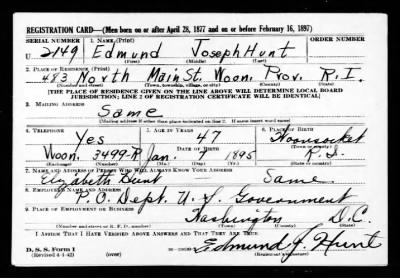 REGISTRATION CARD—(Men born on or after April 28, 1877 and on or before February 16, 1897)
SERIAL NUMBER 1. NAME (Print) ORDER NUMBER
U 2149 Edmund Joseph Hunt
(First) (Middle) (Last)
2. PLACE OF RESIDENCE (Print)
483 North Main St. Woon. Prov. R.I.
(Number and street) (Town, township, village, or city) (County) (State)
[THE PLACE OF RESIDENCE GIVEN ON THE LINE ABOVE WILL DETERMINE LOCAL BOARD
JURISDICTION; LINE 2 OF REGISTRATION CERTIFICATE WILL BE IDENTICAL]
3. MAILING ADDRESS
Same
(Mailing address if other than place indicated on line 2. If same insert word same)
4. TELEPHONE 5. AGE IN YEARS 6. PLACE OF BIRTH
Yes 47 Woonsocket
DATE OF BIRTH (Town or county)
Woon. 3499-R Jan. 7 1895 R.I.
(Exchange) (Number) (Mo.) (Day) (Yr.) (State or country)
7. NAME AND ADDRESS OF PERSON WHO WILL ALWAYS KNOW YOUR ADDRESS
Elizabeth Hunt Same
8. EMPLOYER'S NAME AND ADDRESS
P.O. Dept. U.S. Government
9. PLACE OF EMPLOYMENT OR BUSINESS
Washington D.C.
(Number and street or R. F. D. number) (Town) (County) (State)
I AFFIRM THAT I HAVE VERIFIED ABOVE ANSWERS AND THAT THEY ARE TRUE.
D. S. S. Form 1
(Revised 4-1-42) (over)
Edmund J. Hunt